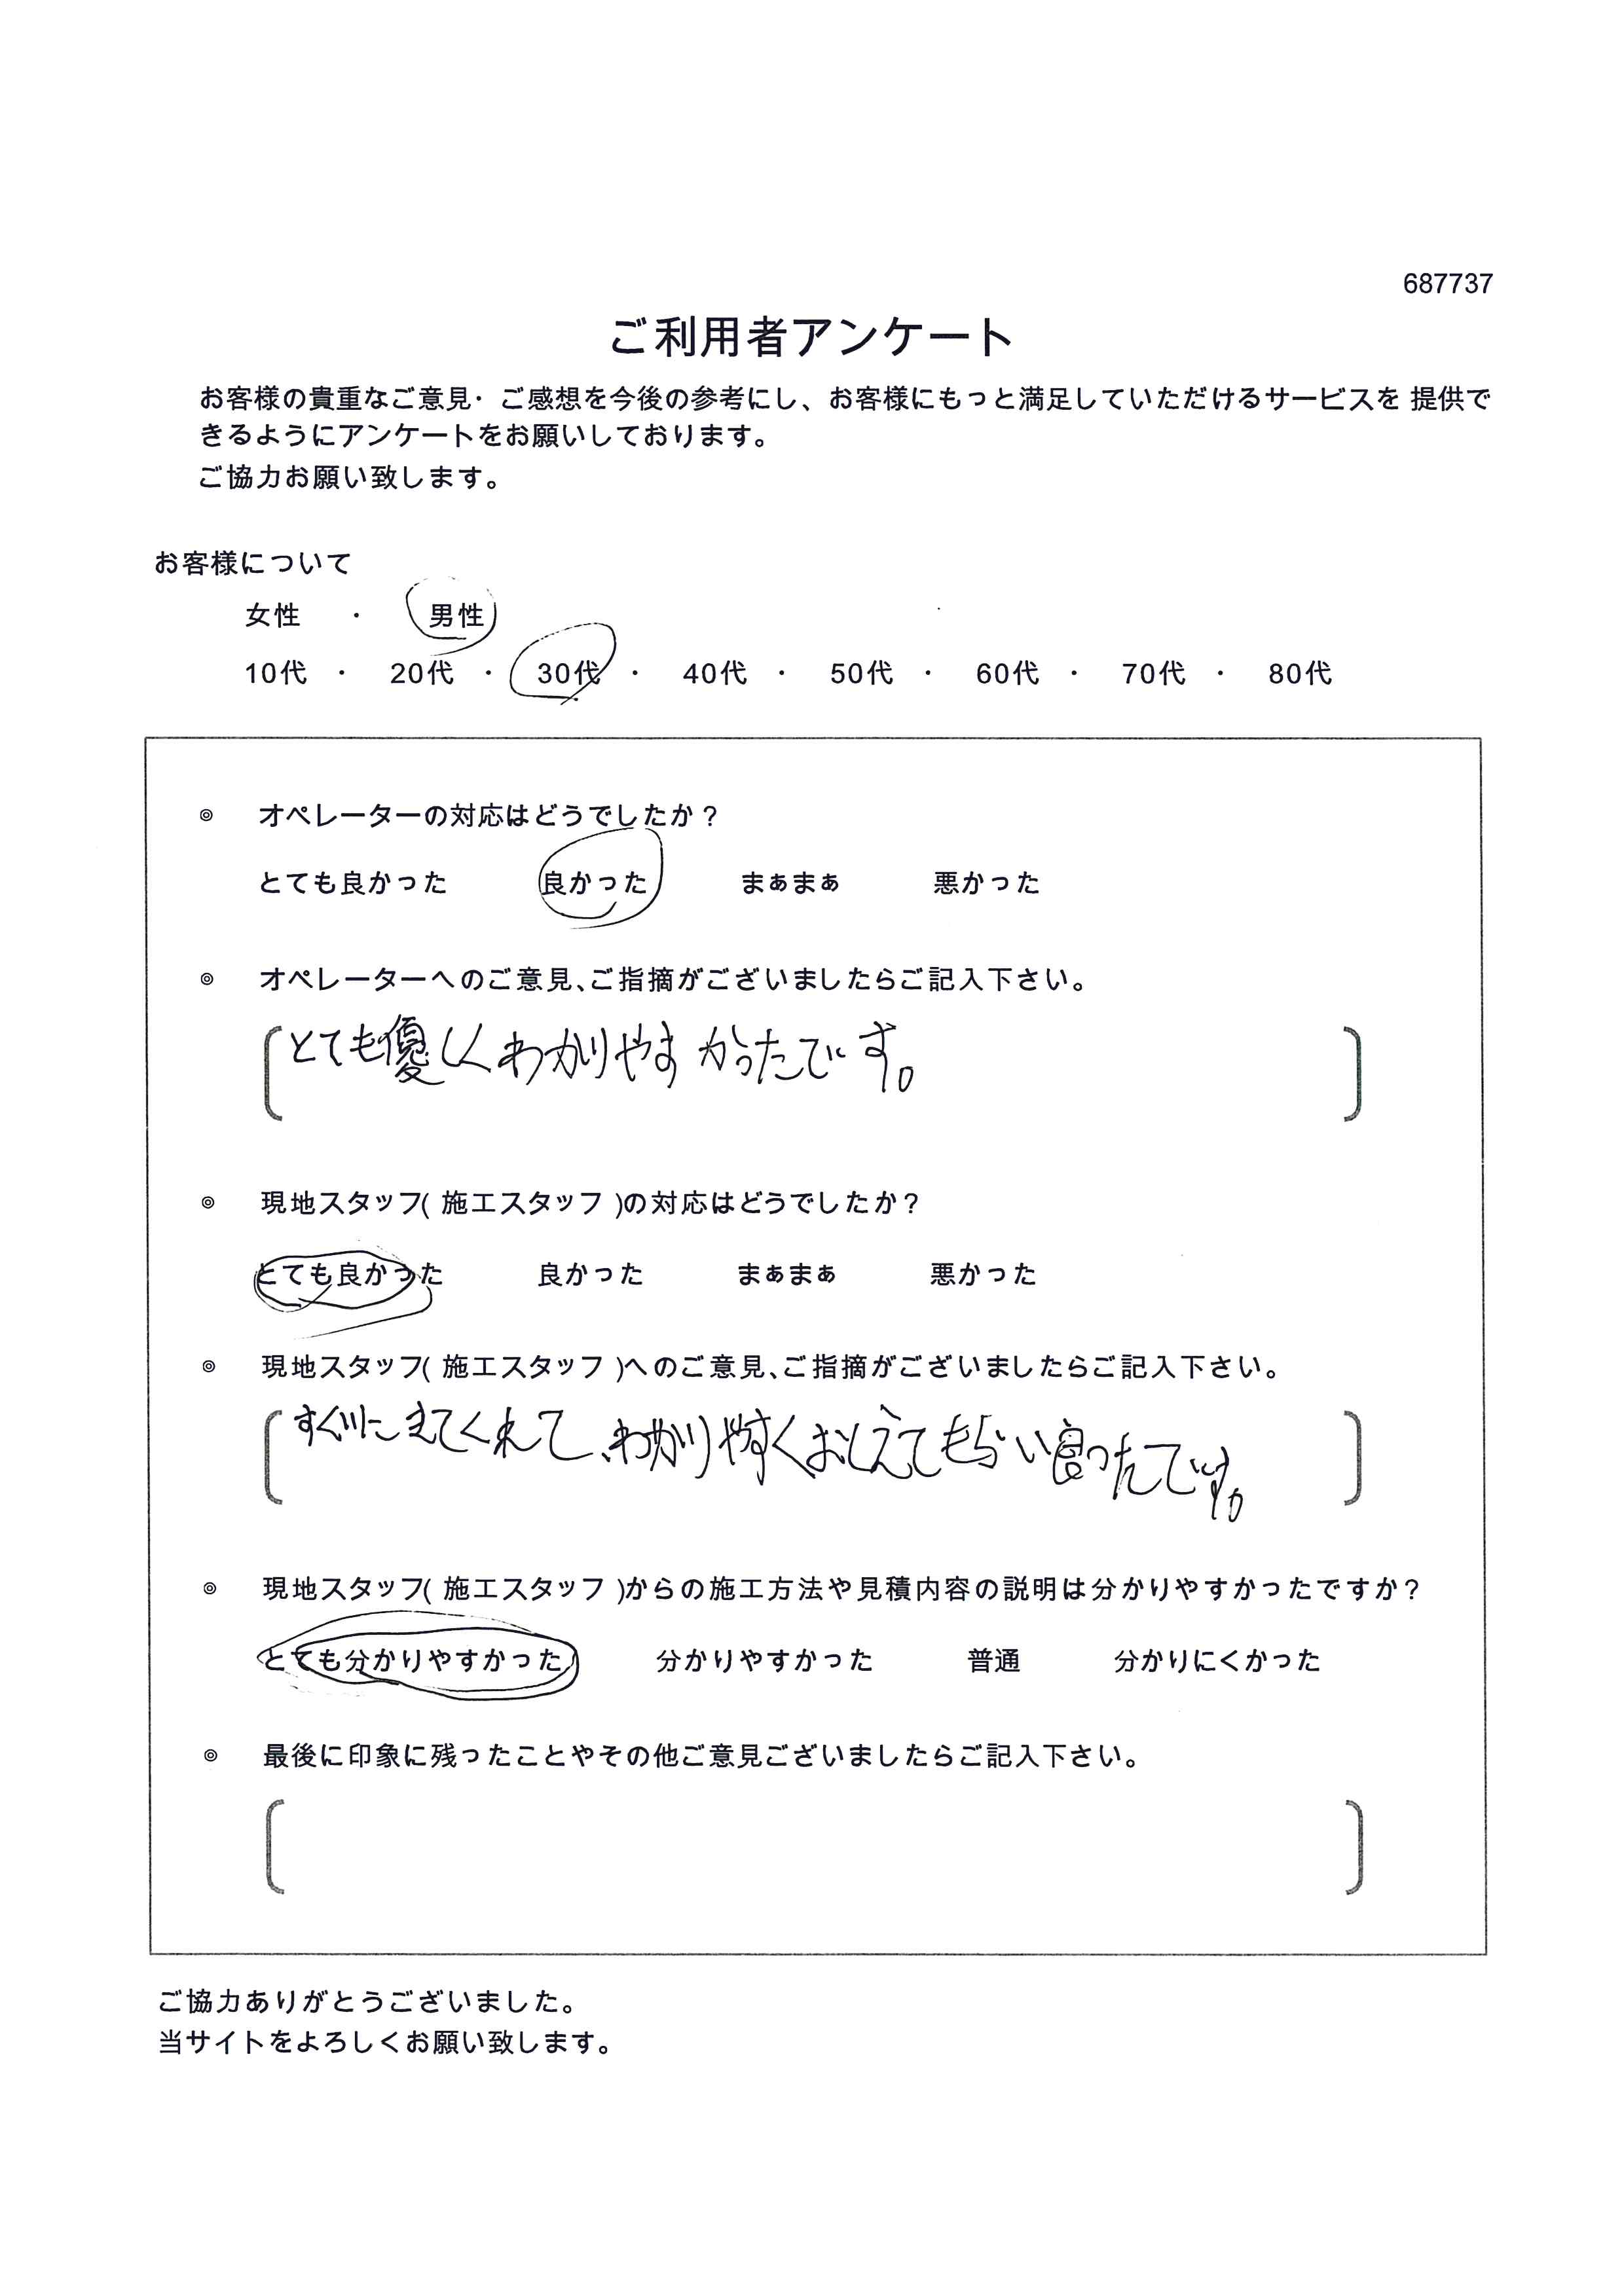 687737
ご利用者アンケート
お客様の貴重なご意見・ご感想を今後の参考にし、お客様にもっと満足していただけるサービスを 提供で
きるようにアンケートをお願いしております。
ご協力お願い致します。
お客様について
女性 ・ 男性
10代 ・ 20代 ・ 30代 ・ 40代 ・ 50代 ・ 60代 ・ 70代 ・ 80代
◎ オペレーターの対応はどうでしたか？
とても良かった 良かった まぁまぁ 悪かった
◎ オペレーターへのご意見、ご指摘がございましたらご記入下さい。
とても優しくわかりやすかったです。
◎ 現地スタッフ( 施工スタッフ )の対応はどうでしたか？
とても良かった 良かった まぁまぁ 悪かった
◎ 現地スタッフ( 施工スタッフ )へのご意見、ご指摘がございましたらご記入下さい。
すぐにきてくれて、わかりやすくおしえてもらい良ったです。
◎ 現地スタッフ( 施工スタッフ )からの施工方法や見積内容の説明は分かりやすかったですか？
とても分かりやすかった 分かりやすかった 普通 分かりにくかった
◎ 最後に印象に残ったことやその他ご意見ございましたらご記入下さい。
ご協力ありがとうございました。
当サイトをよろしくお願い致します。